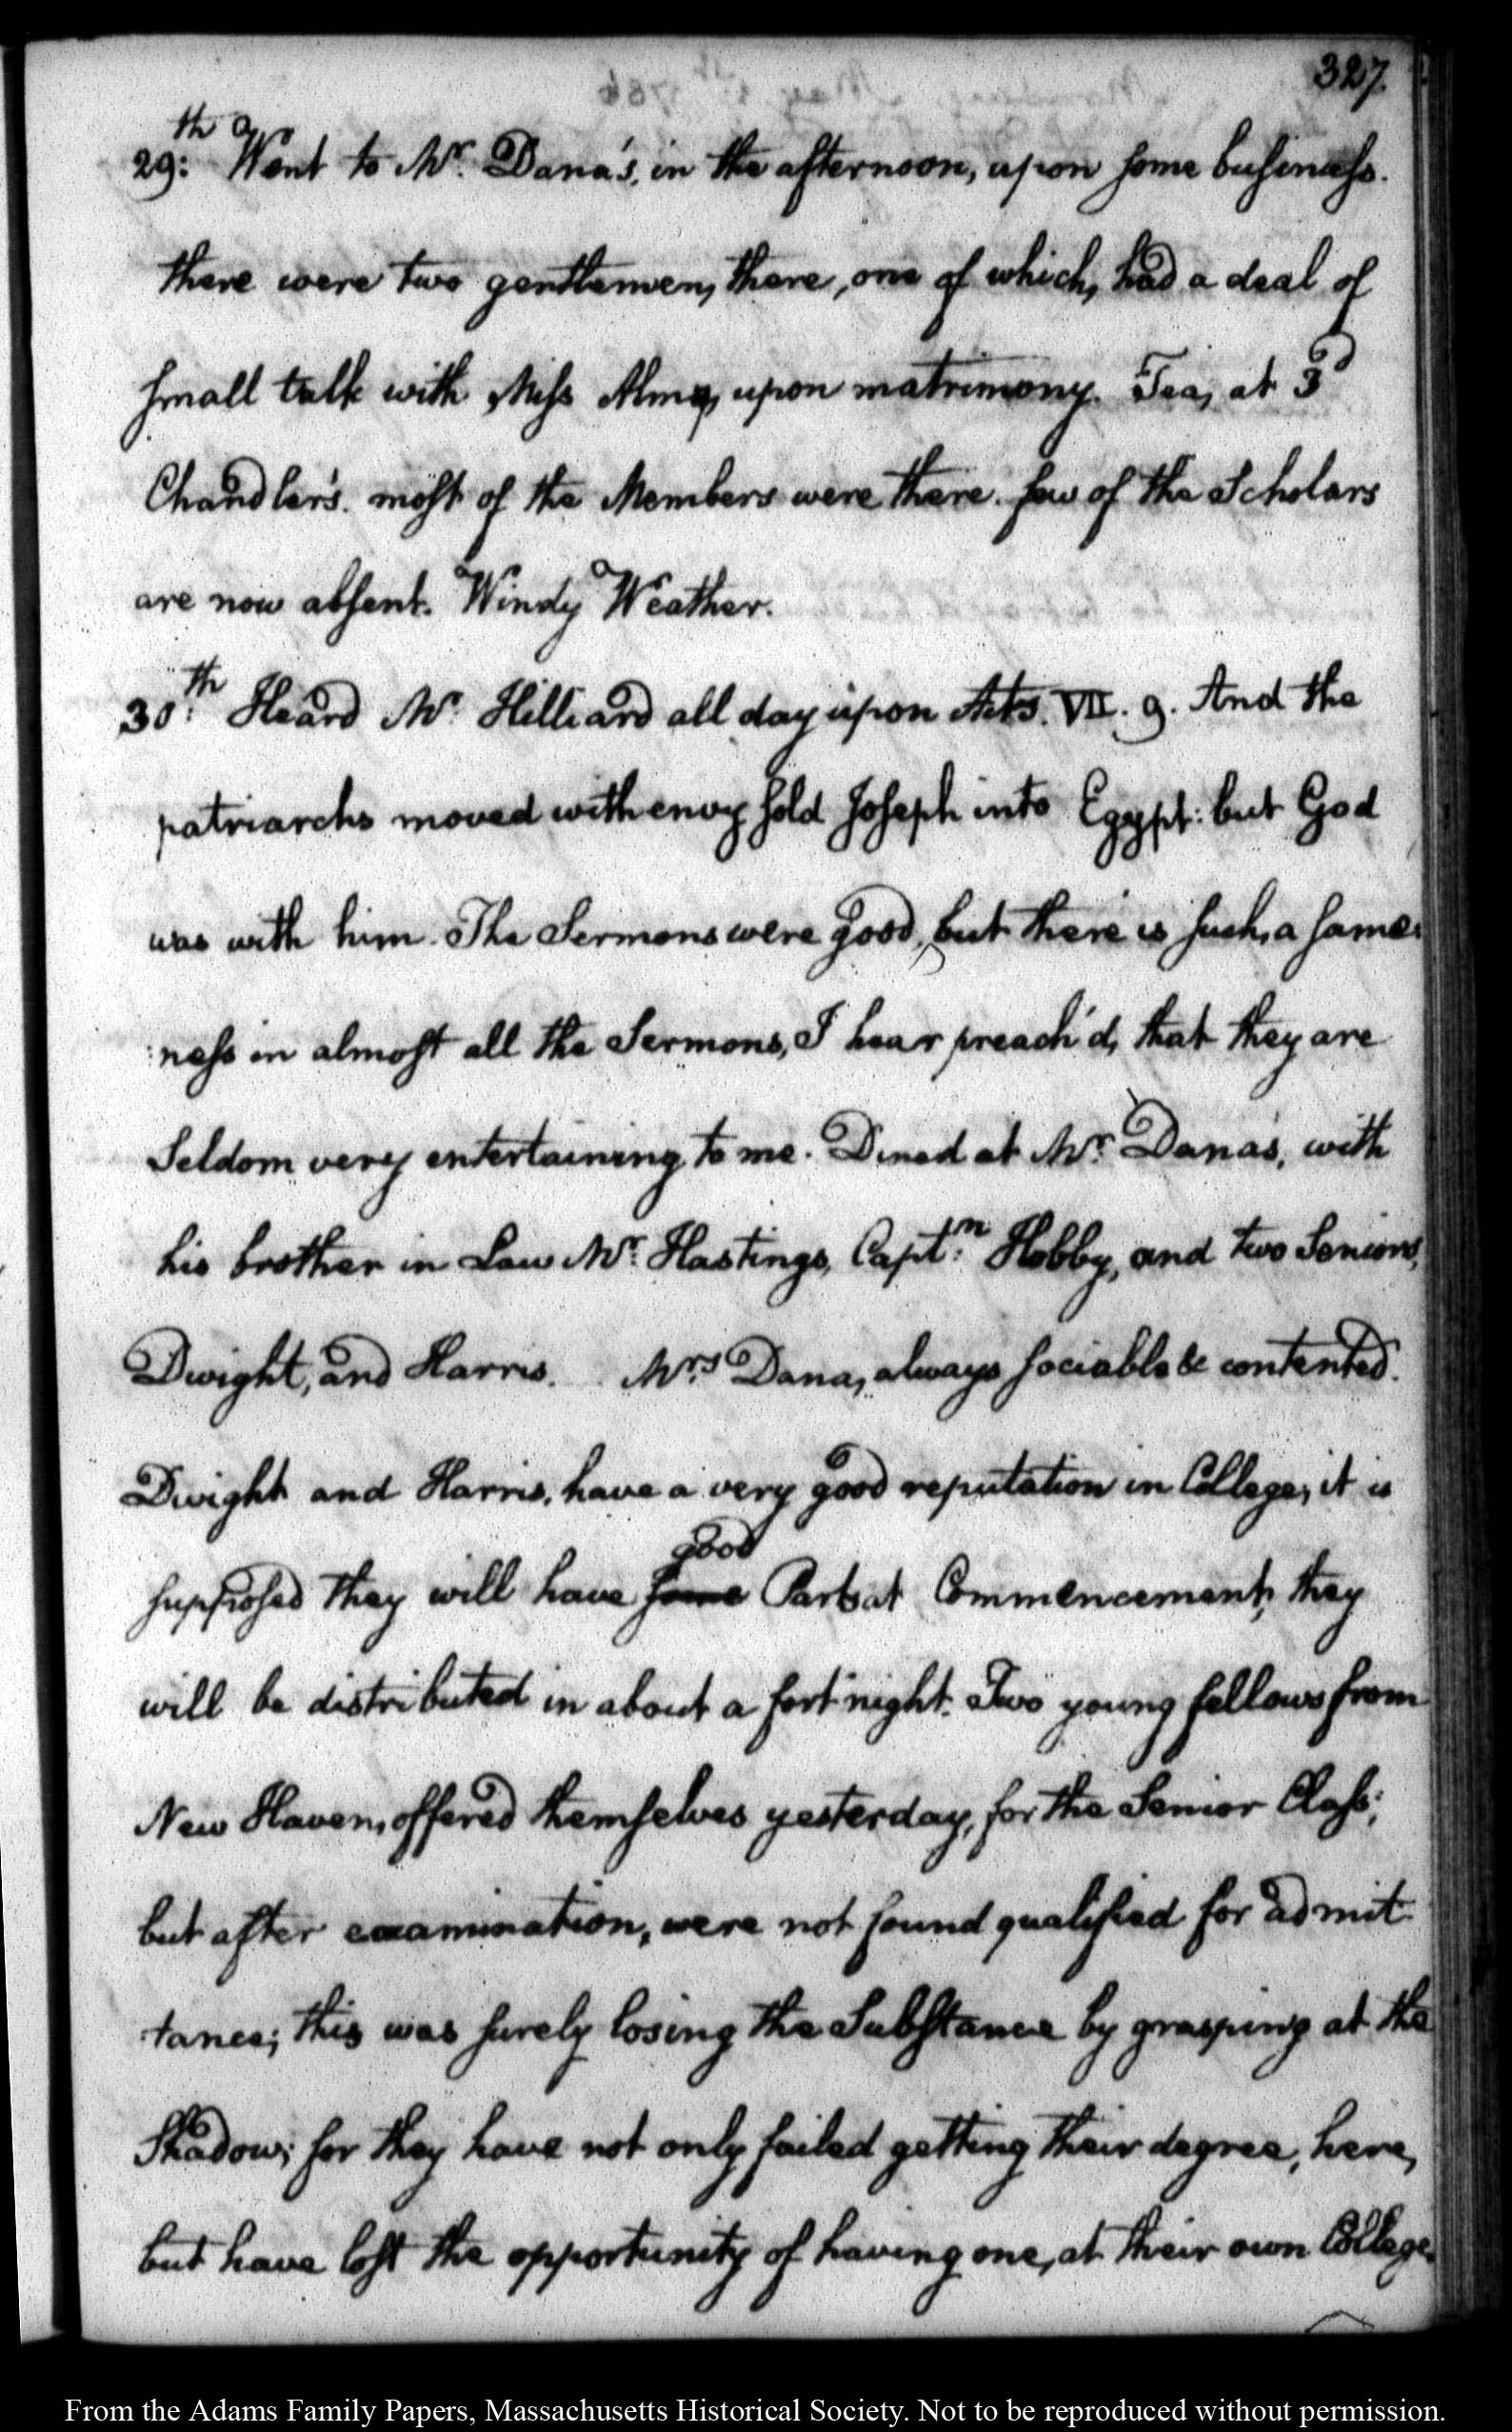 327.
29:th Went to Mr. Dana's, in the afternoon, upon some business.
there were two gentlemen, there, one of which, had a deal of
small talk with Miss Almy, upon matrimony. Tea, at 3d
Chandler's. most of the Members were there. few of the Scholars
are now absent. Windy Weather.
30:th Heard Mr. Hilliard all day upon Acts. VII. 9. And the
patriarchs moved with envy sold Joseph into Egypt: but God
was with him. The Sermons were good, but there is such, a same:
:ness in almost all the Sermons, I hear preach'd, that they are
Seldom very entertaining to me. Dined at Mr. Dana's, with
his brother in Law Mr. Hastings, Capt:m Hobby, and two Seniors,
Dwight, and Harris. Mrs. Dana, always sociable & contented.
Dwight and Harris, have a very good reputation in College, it is
good
supposed they will have some Parts at Commencement, they
will be distributed in about a fortnight. Two young fellows from
New Haven, offered themselves yesterday, for the Senior Class;
but after examination, were not found qualified for admit
tance; this was surely losing the Substance by grasping at the
Shadow; for they have not only failed getting their degree, here,
but have lost the opportunity of having one, at their own College.
From the Adams Family Papers, Massachusetts Historical Society. Not to be reproduced without permission.